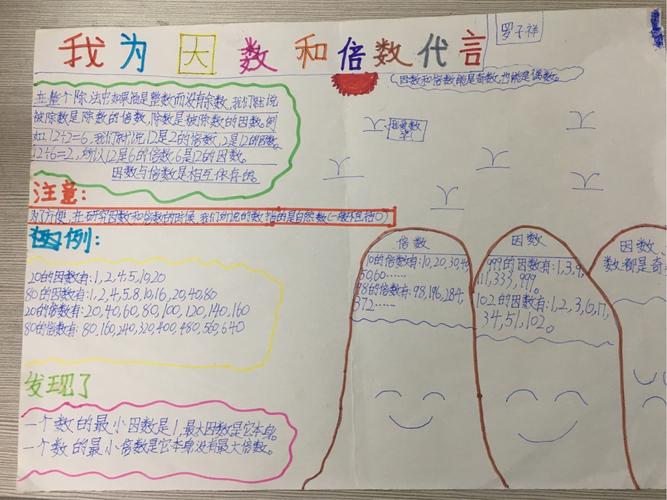 罗子祥
我为因数和倍数代言
因数和倍数能是奇数,也能是偶数。
在整个除法中如果商是整数而没有余数,我们就说
被除数是除数的倍数,除数是被除数的因数。例
如:12÷2=6,我们就说12是2的倍数,2是12的因数。
12÷6=2,所以12是6的倍数,6是12的因数。
因数与倍数是相互依存的。
我爱数学
注意:
为了方便,在研究因数和倍数的时候,我们所说的数指的是自然数(一般不包括0)
举例:
20的因数有:1,2,4,5,10,20
80的因数有:1,2,4,5,8,10,16,20,40,80
20的倍数有:20,40,60,80,100,120,140,160
80的倍数有:80,160,240,320,400,480,560,640
发现了
一个数的最小因数是1,最大因数是它本身。
一个数的最小倍数是它本身,没有最大倍数。
倍数
10的倍数有:10,20,30,40
50,60……
98的倍数有:98,196,284,
372……
因数
999的因数有:1,3,9,
111,333,999。
102的因数有:1,2,3,6,17,
34,51,102。
因数
数都是奇